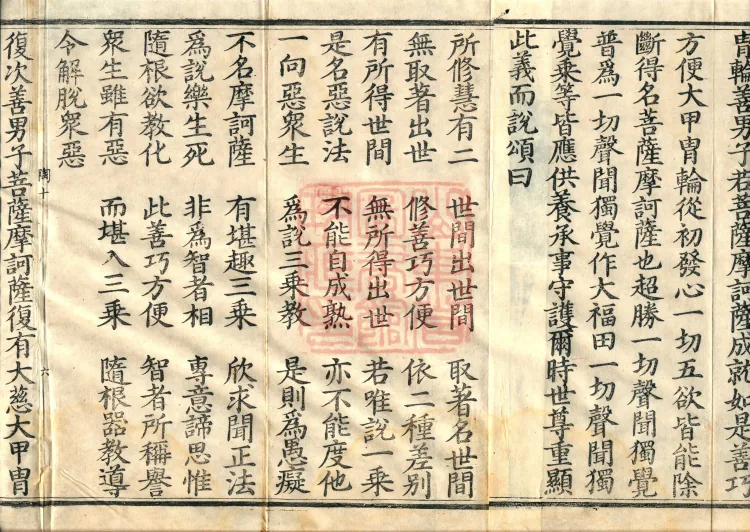 冑輪善男子若菩薩摩訶薩成就如是善巧
方便大甲冑輪從初發心一切五欲皆能除
斷得名菩薩摩訶薩也超勝一切聲聞獨覺
普爲一切聲聞獨覺作大福田一切聲聞獨
覺乘等皆應供養承事守護爾時世尊重顯
此義而說頌曰
所修慧有二 世間出世間 取著名世間
無取著出世 修善巧方便 依二種差別
有所得世間 無所得出世 若唯說一乘
是名惡說法 不能自成熟 亦不能度他
一向惡衆生 爲說三乘教 是則爲愚癡
不名摩訶薩 有堪趣三乘 欣求聞正法
爲說樂生死 非爲智者相 專意諦思惟
隨根欲教化 此善巧方便 智者所稱譽
衆生雖有惡 而堪入三乘 隨根器教導
令解脫衆惡
陶十 六
復次善男子菩薩摩訶薩復有大慈大甲冑